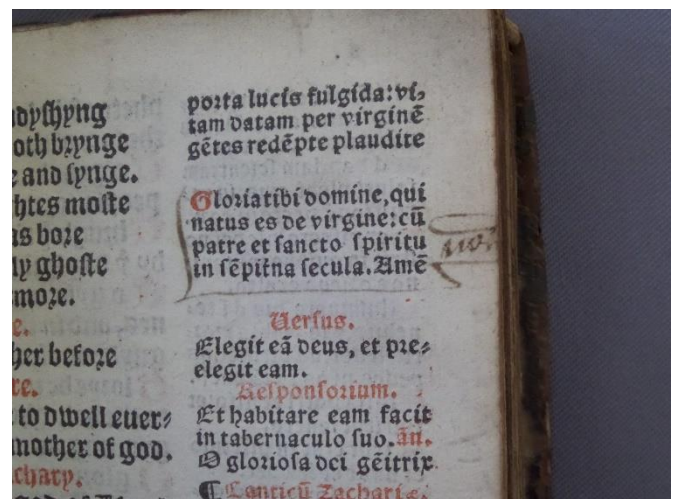 dyshyng
oth brynge
and synge.
htes moste
as bore
ly ghoste
more.
e.
her before
re.
to dwell euer⸗
mother of god.
chary.
porta lucis fulgida: vi⸗
tam datam per virginē
gētes redēpte plaudite
Gloria tibi domine, qui
natus es de virgine: cū
patre et sancto spiritu
in sēpit̄na secula. Amē
Uersus.
Elegit eā deus, et pre⸗
elegit eam.
Responsorium.
Et habitare eam facit
in tabernaculo suo. ān.
O gloriosa dei gēitrix
¶ Canticū Zacharie.